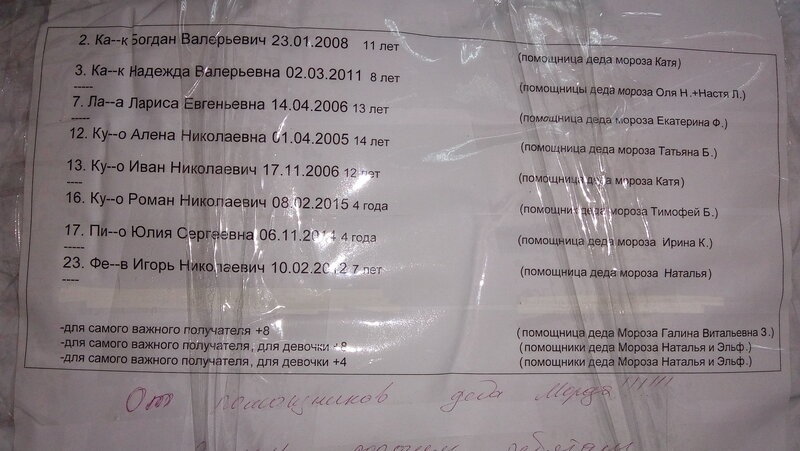 2. Ка--к Богдан Валерьевич 23.01.2008 11 лет (помощница деда мороза Катя)
3. Ка--к Надежда Валерьевна 02.03.2011 8 лет (помощницы деда мороза Оля Н.+Настя Л.)
-----
7. Ла--а Лариса Евгеньевна 14.04.2006 13 лет (помощница деда мороза Екатерина Ф.)
-----
12. Ку--о Алена Николаевна 01.04.2005 14 лет (помощница деда мороза Татьяна Б.)
13. Ку--о Иван Николаевич 17.11.2006 12 лет (помощница деда мороза Катя)
----
16. Ку--о Роман Николаевич 08.02.2015 4 года (помощник деда мороза Тимофей Б.)
-----
17. Пи--о Юлия Сергеевна 06.11.2014 4 года (помощница деда мороза Ирина К.)
-----
23. Фе--в Игорь Николаевич 10.02.2012 7 лет (помощница деда мороза Наталья)
-----
-для самого важного получателя +8 (помощница деда Мороза Галина Витальевна З.)
-для самого важного получателя, для девочки +8 (помощники деда Мороза Наталья и Эльф.)
-для самого важного получателя, для девочки +4 (помощники деда Мороза Наталья и Эльф.)
От помощников деда Мороза!!!!!!